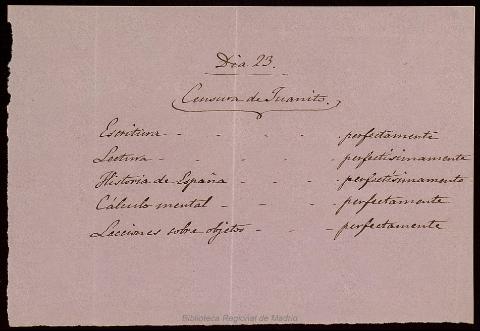 Dia 23.
Censura de Juanito.
Escritura - - - - - - perfectamente
Lectura - - - - - - perfectisimamente
Historia de España - - - - perfectisimamente
Cálculo mental - - - - - perfectamente
Lecciones sobre objetos - - - - perfectamente
Biblioteca Regional de Madrid